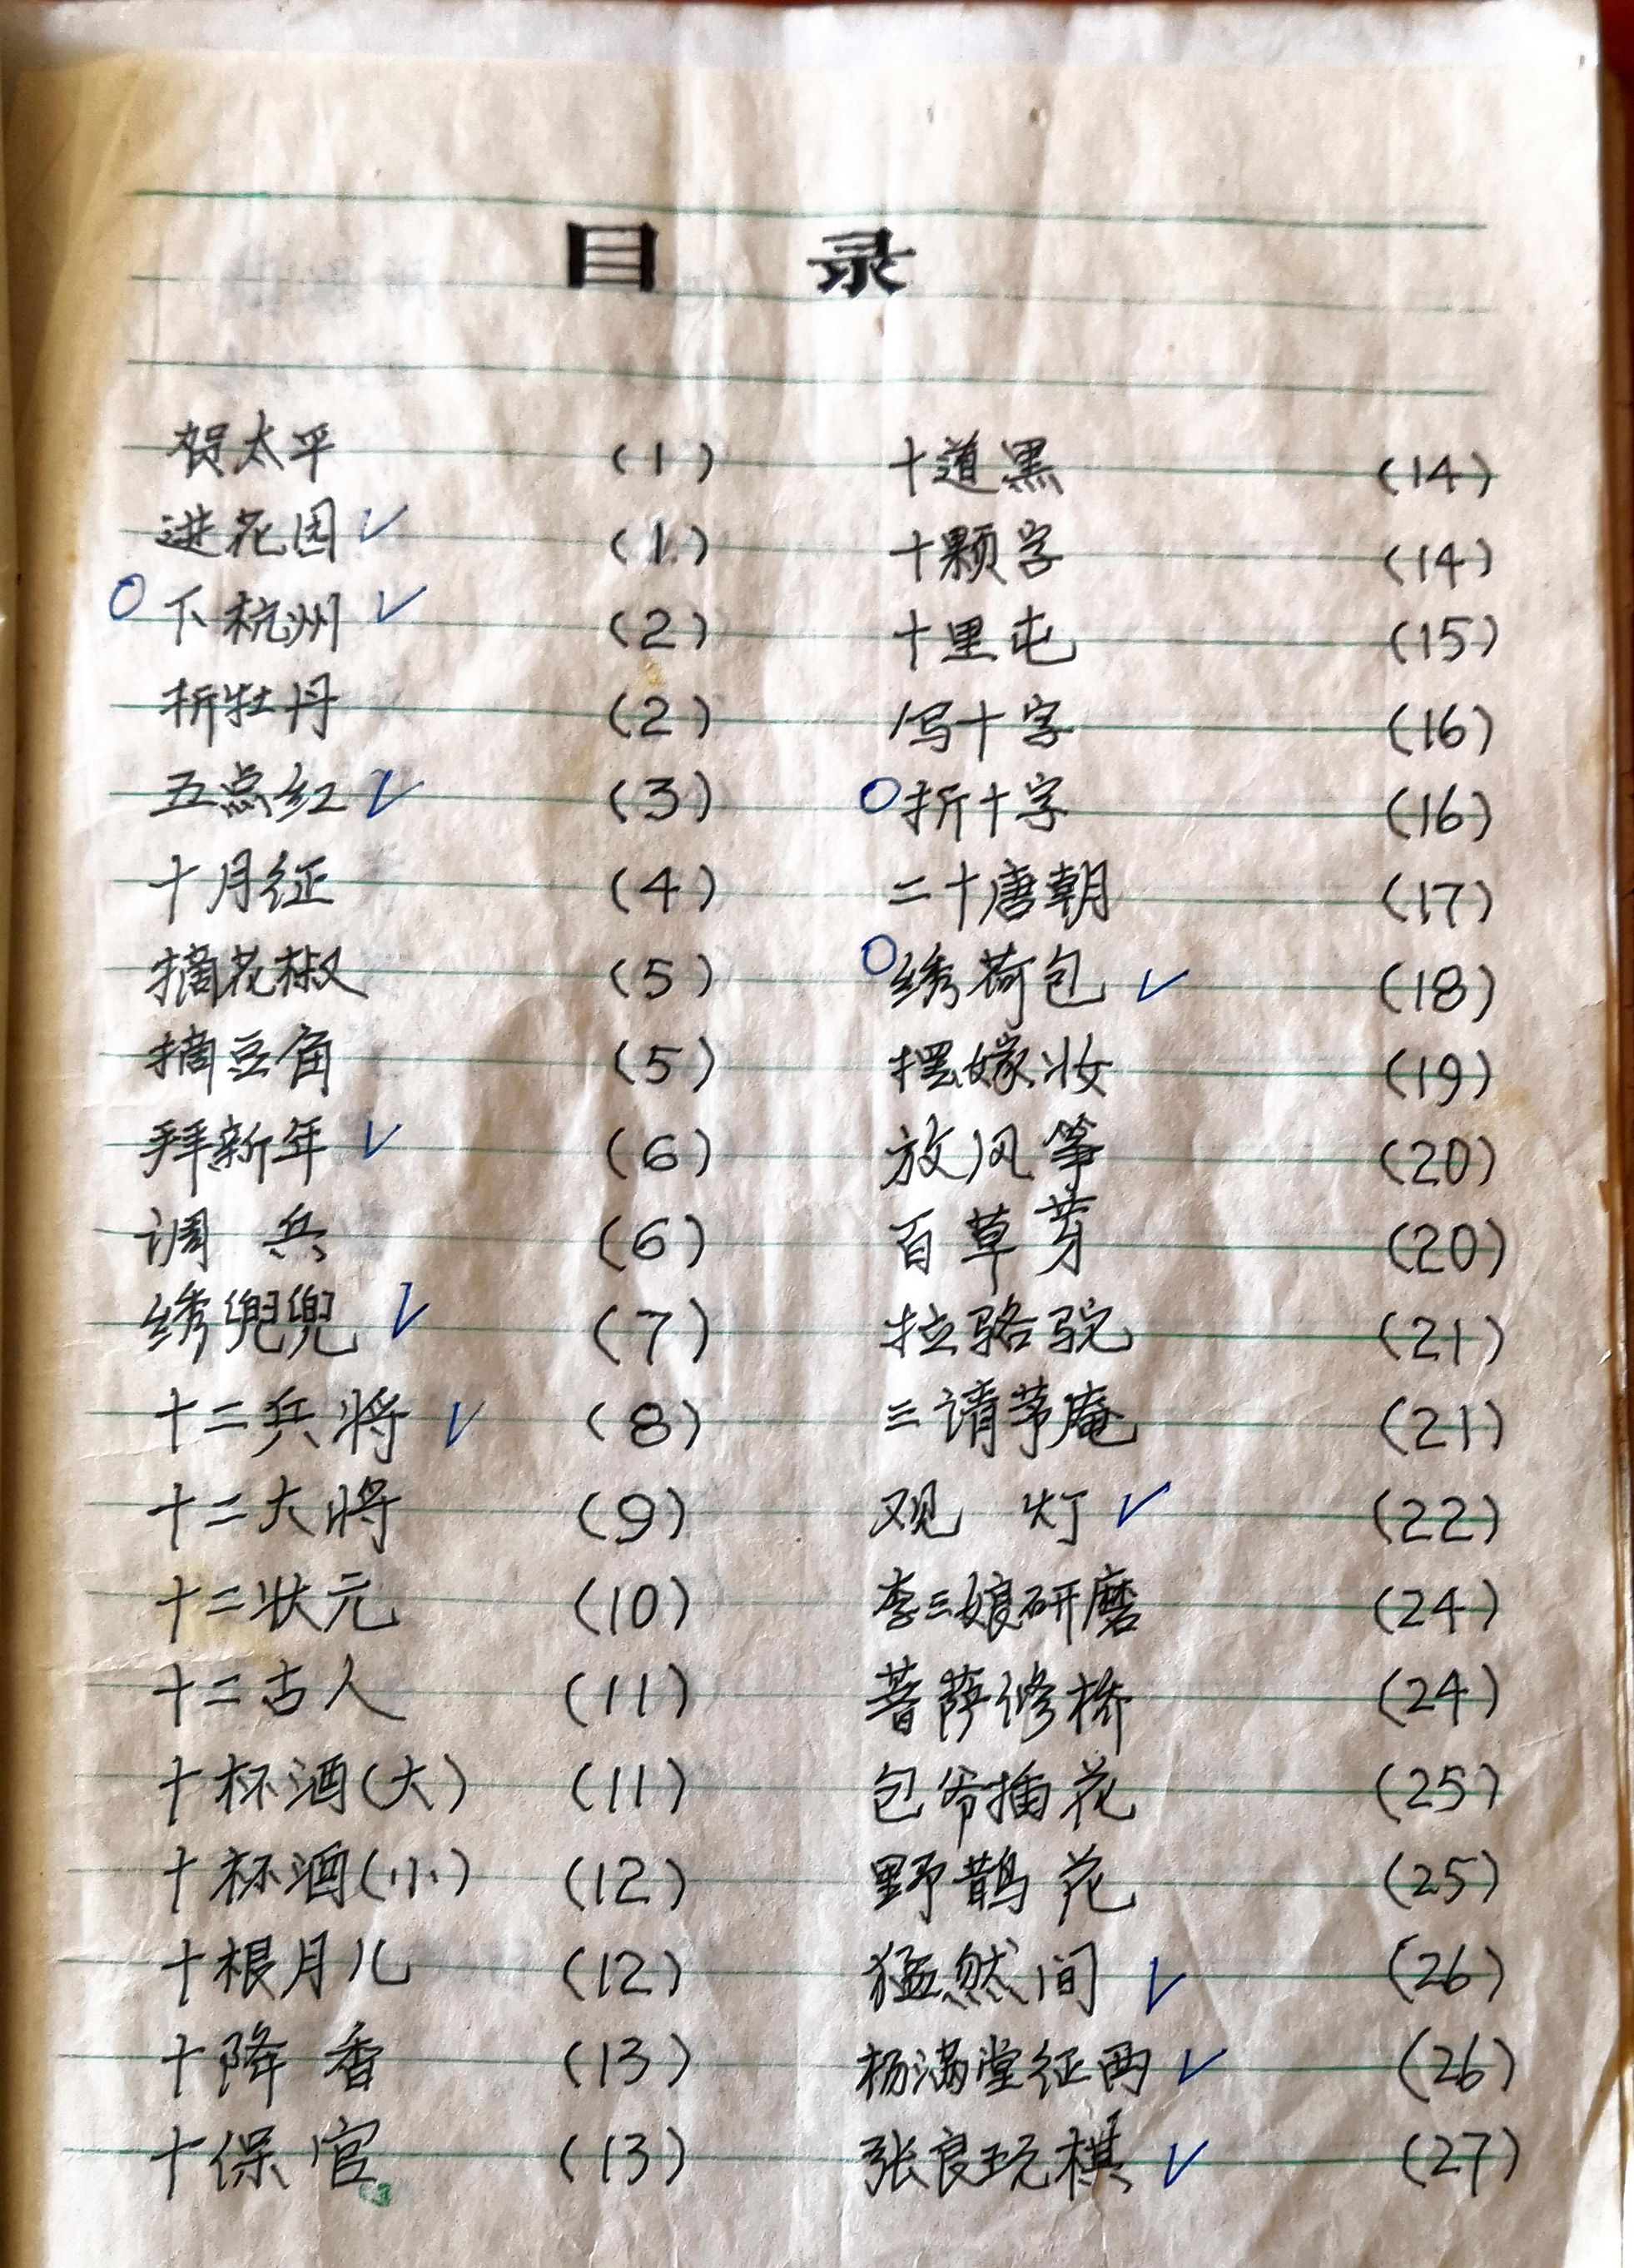 目 录
贺太平 (1)
进花园 (1)
下杭州 (2)
折牡丹 (2)
五点红 (3)
十月征 (4)
摘花椒 (5)
摘豆角 (5)
拜新年 (6)
调 兵 (6)
绣兜兜 (7)
十二兵将 (8)
十二大将 (9)
十二状元 (10)
十二古人 (11)
十杯酒(大) (11)
十杯酒(小) (12)
十根月儿 (12)
十降香 (13)
十保官 (13)
十道黑 (14)
十颗字 (14)
十里屯 (15)
写十字 (16)
折十字 (16)
二十唐朝 (17)
绣荷包 (18)
摆嫁妆 (19)
放风筝 (20)
百草芽 (20)
拉骆驼 (21)
三请茅庵 (21)
观 灯 (22)
李三娘研磨 (24)
菩萨修桥 (24)
包爷插花 (25)
野鹊花 (25)
猛然间 (26)
杨满堂征西 (26)
张良玩棋 (27)